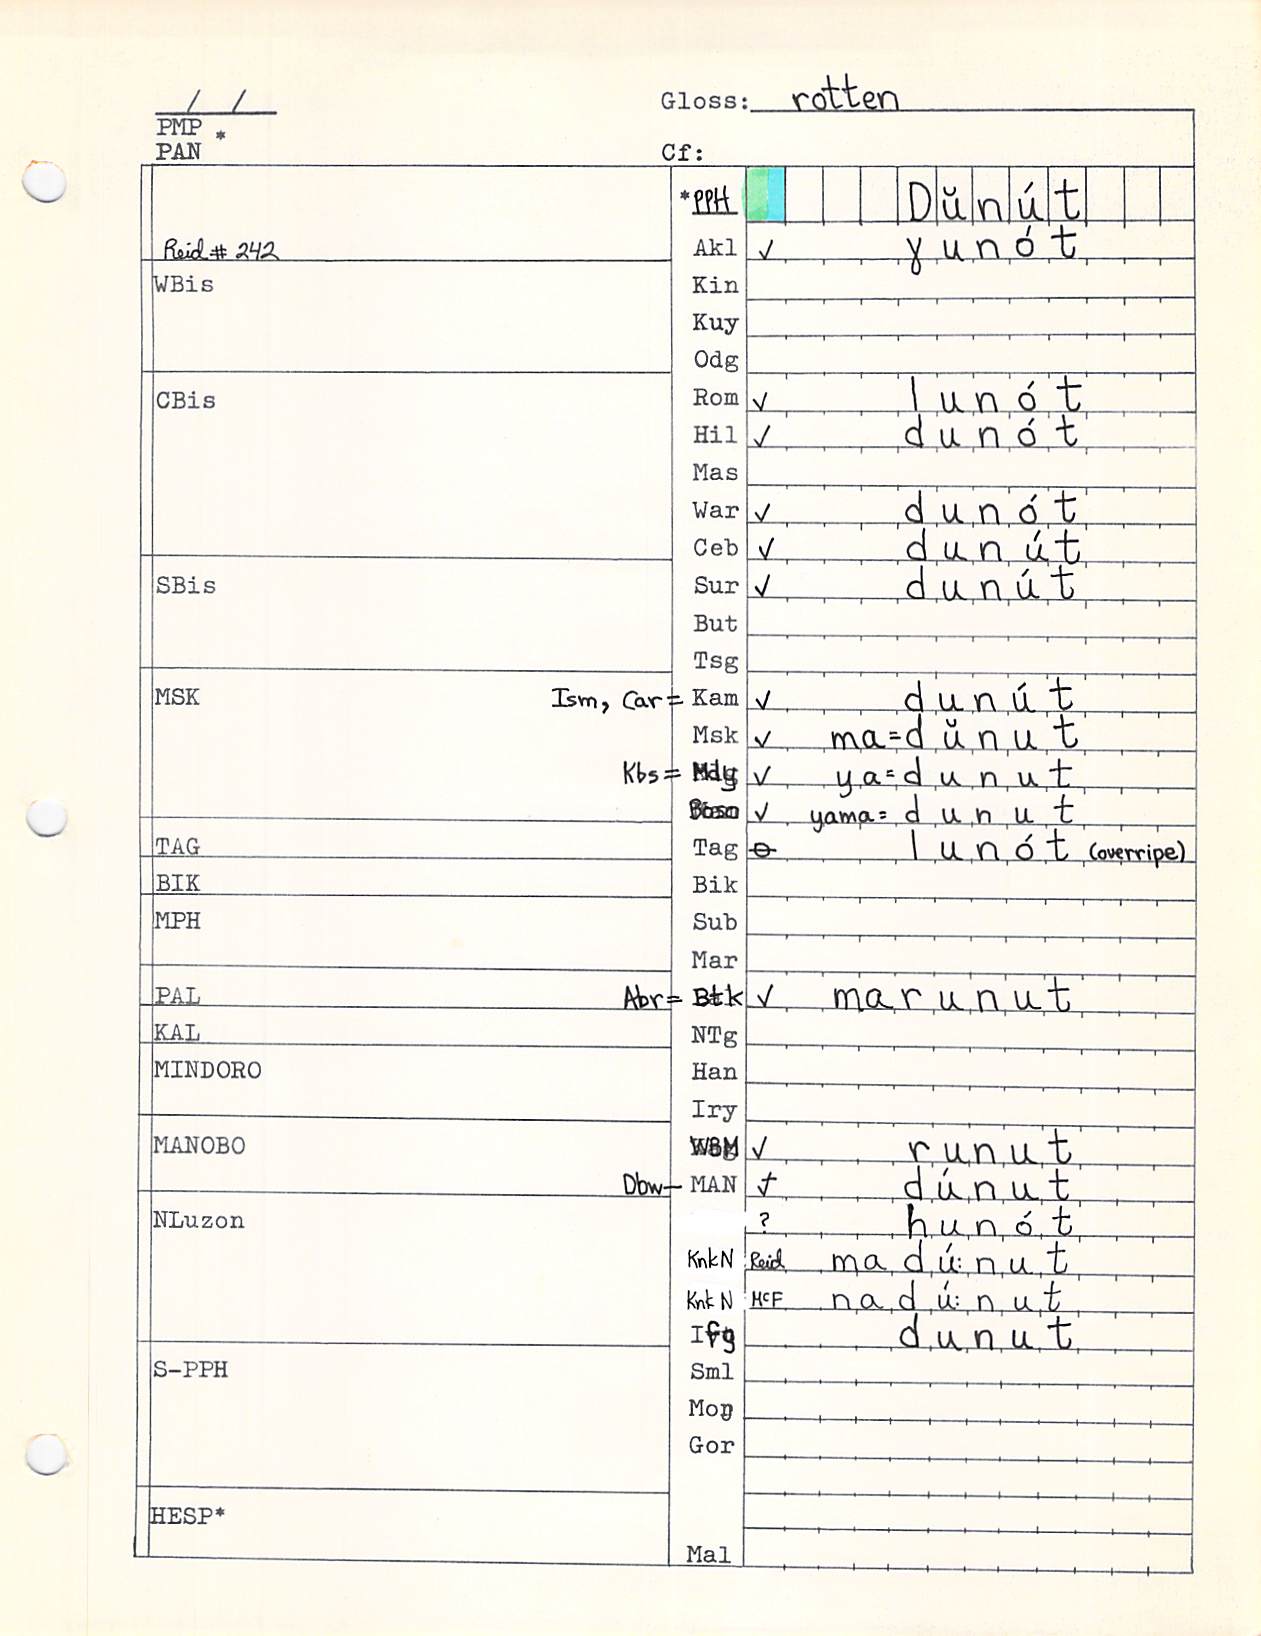 / /
Gloss: rotten
PMP *
PAN
Cf:
*PPH Dŭnút
Reid # 242
Akl ✓ ɣunót
WBis
Kin
Kuy
Odg
CBis
Rom ✓ lunót
Hil ✓ dunót
Mas
War ✓ dunót
Ceb ✓ dunút
SBis
Sur ✓ dunút
But
Tsg
MSK
Ism, Car = Kam ✓ dunút
Msk ✓ ma=dŭnut
Kbs = ✓ ya=dunut
✓ yama=dunut
TAG
Tag ⊖ lunót (overripe)
BIK
Bik
MPH
Sub
Mar
PAL
Abr = Btk ✓ marunut
KAL
NTg
MINDORO
Han
Iry
MANOBO
WBM ✓ runut
Dbw— MAN † dúnut
NLuzon
? hunót
KnkN Reid madú:nut
KnkN McF nadú:nut
Ifg dunut
S-PPH
Sml
Moŋ
Gor
HESP*
Mal